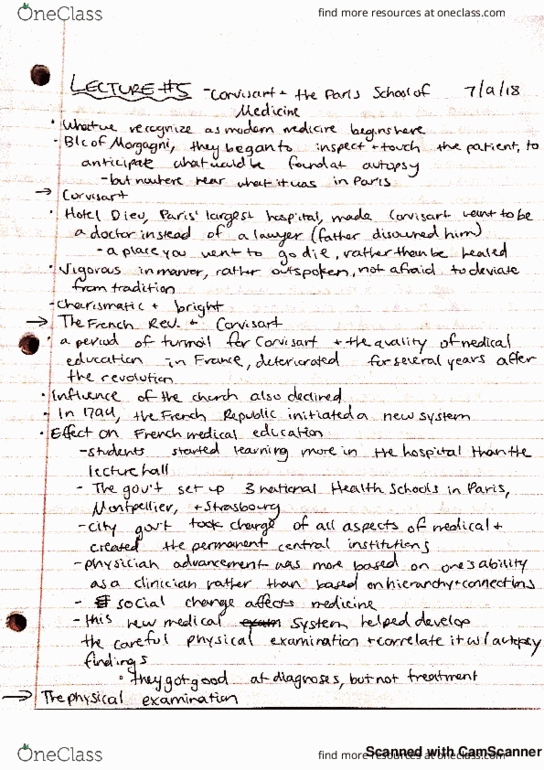 OneClass
find more resources at oneclass.com
LECTURE #5 - Corvisart + the Paris School of 7/9/18
Medicine
• What we recognize as modern medicine begins here
• B/c of Morgagni, they began to inspect + touch the patient, to
anticipate what would be found at autopsy
- but nowhere near what it was in Paris
→ Corvisart
• Hotel Dieu, Paris' largest hospital, made Corvisart want to be
a doctor instead of a lawyer (father disowned him)
- a place you went to go die, rather than be healed
• Vigorous in manor, rather outspoken, not afraid to deviate
from tradition
- charismatic + bright
→ The French Rev. + Corvisart
• a period of turmoil for Corvisart + the quality of medical
education in France, deteriorated for several years after
the revolution
• Influence of the church also declined
• In 1794, the French Republic initiated a new system
• Effect on French medical education
- students started learning more in the hospital than the
lecture hall
- The gov't set up 3 national Health Schools in Paris,
Montpellier, + Strasbourg
- city gov't took charge of all aspects of medical +
created the permanent central institutions
- physician advancement was more based on one's ability
as a clinician rather than based on hierarchy + connections
- social change affects medicine
- this new medical exam system helped develop
the careful physical examination + correlate it w/ autopsy
findings
• they got good at diagnoses, but not treatment
→ The physical examination
OneClass
find more resources at oneclass.com
Scanned with CamScanner